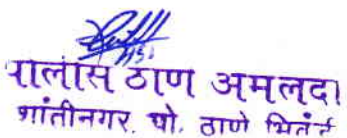 पोलीस ठाणे अमलदा
शांतीनगर. पो. ठाणे भिवंडी